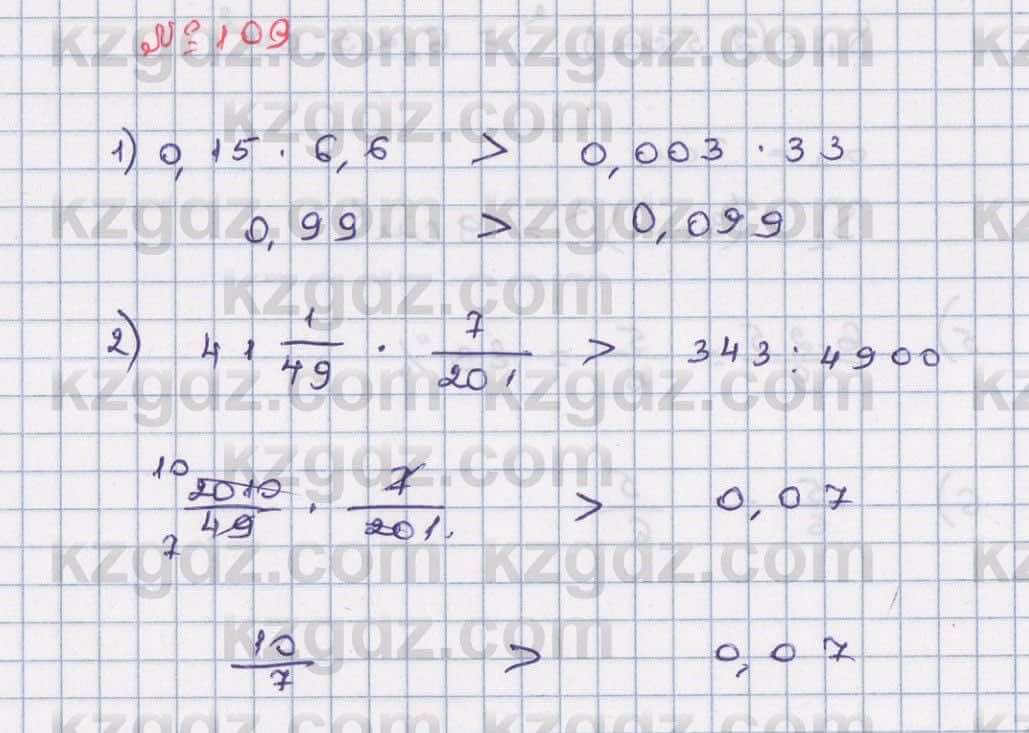 № 109
1) 0,15 · 6,6 > 0,003 · 33
0,99 > 0,099
2) 41 1/49 · 7/201 > 343 : 4900
10 2010/49 7 · 7/201 > 0,07
10/7 > 0,07
kzgdz.com